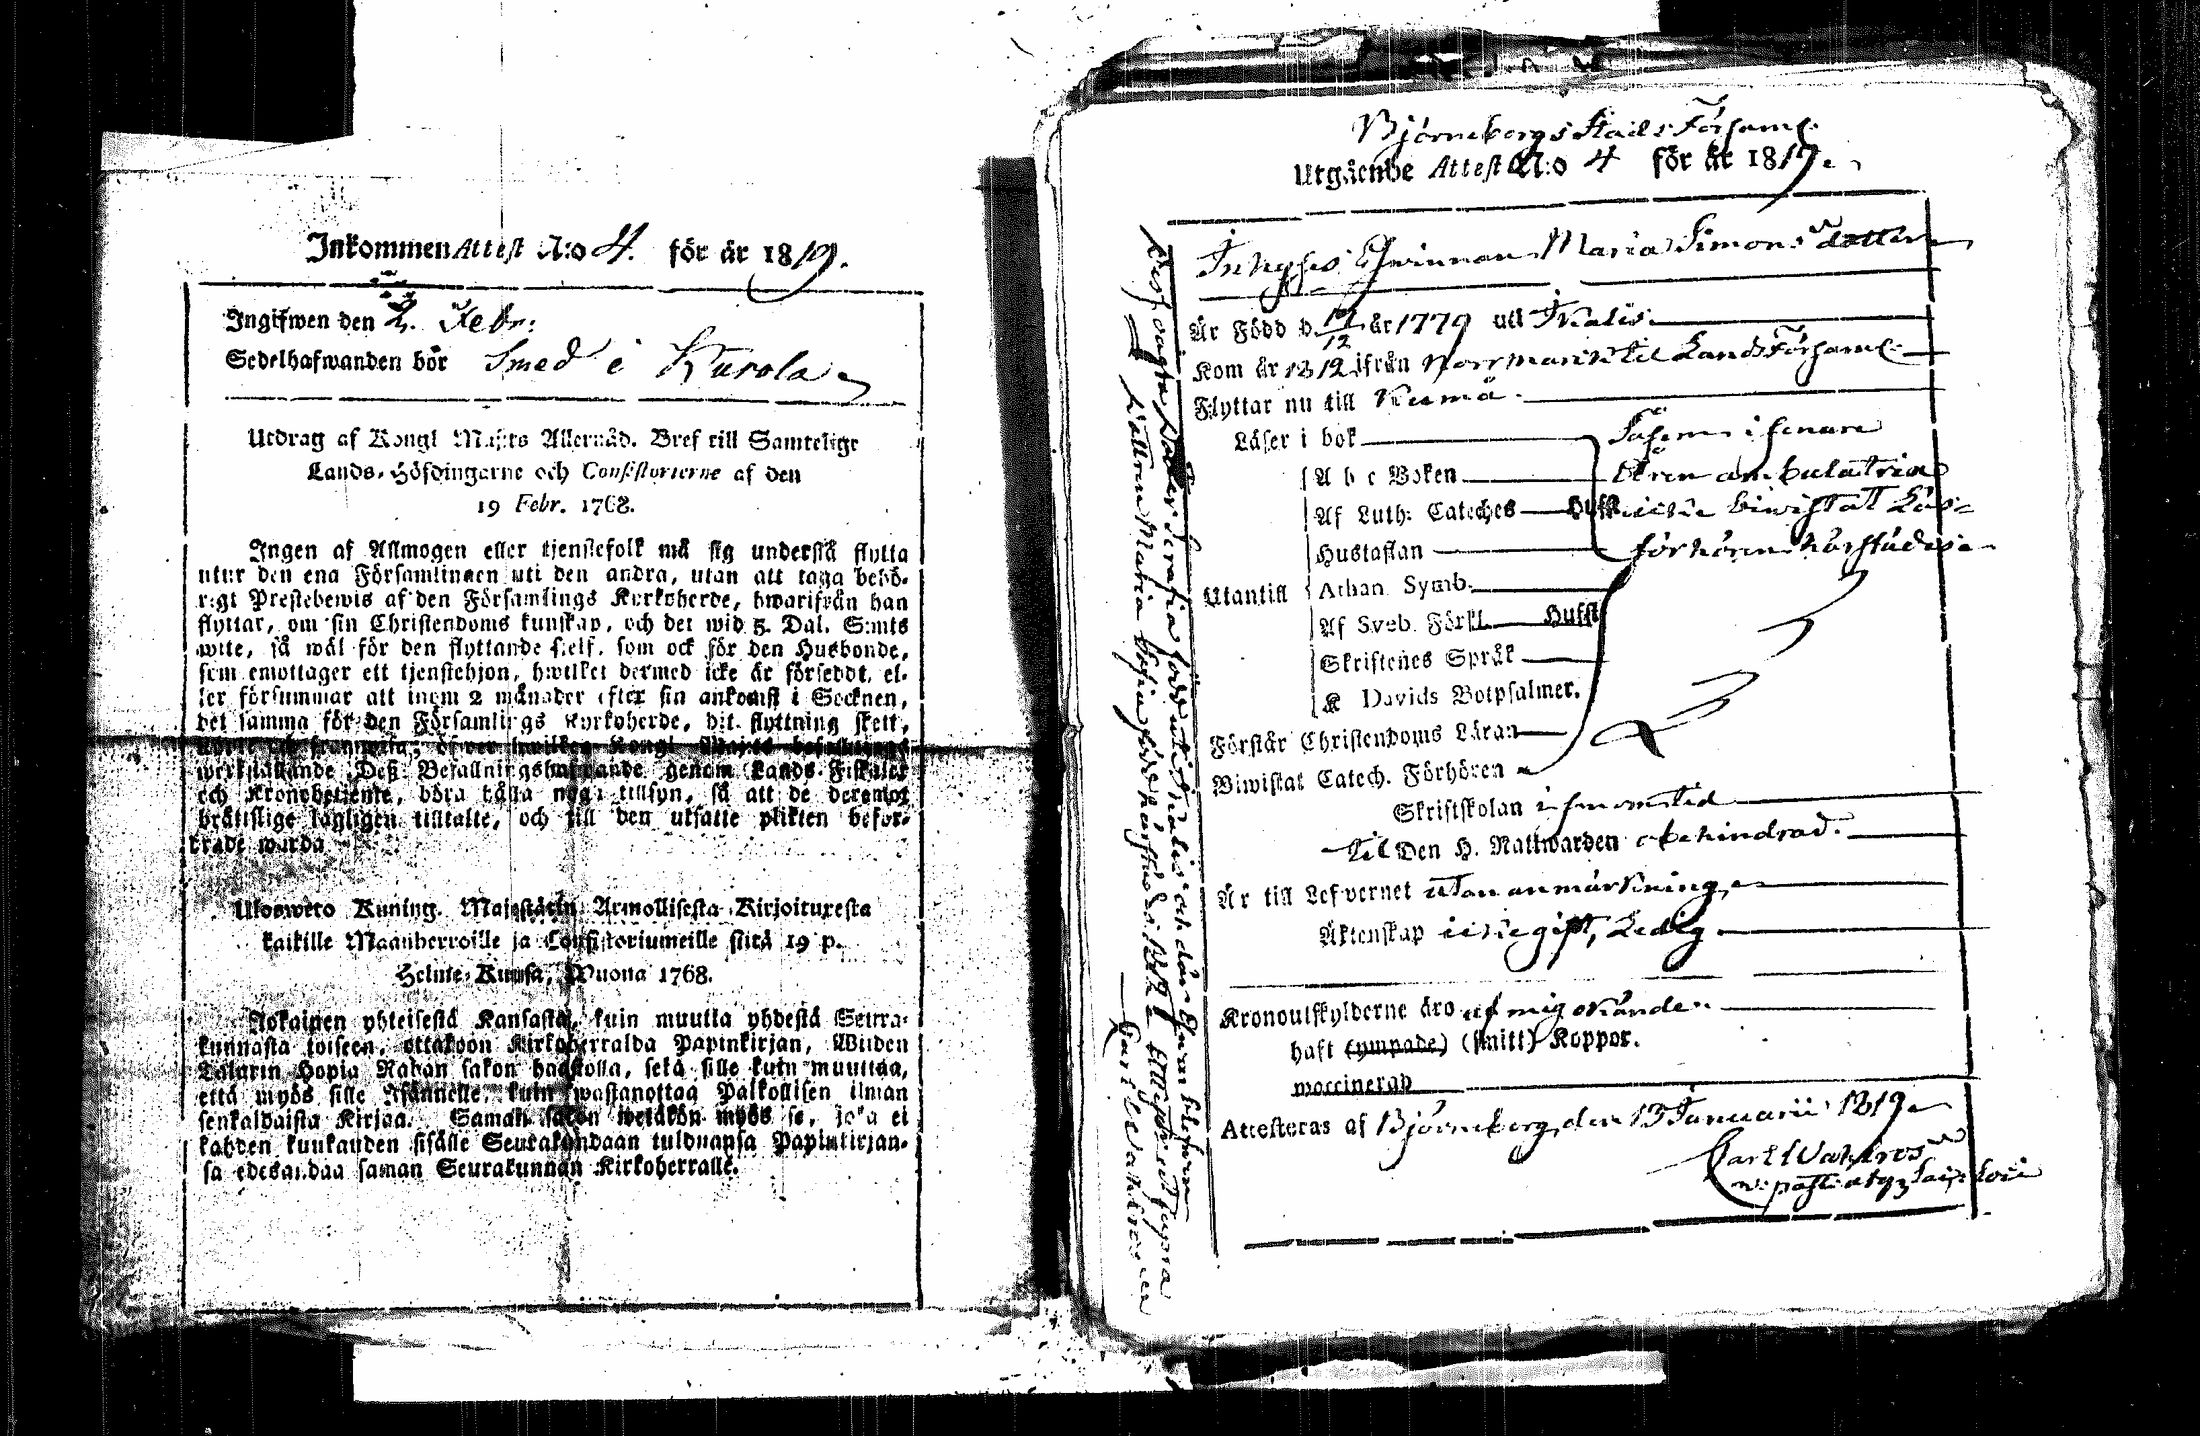 Inkommen Attest N:o 4. för år 1819.
Ingifwen den 2. Febr:
Sedelhafwanden bör Smed i Kurola
Utdrag af Kongl Maj:ts Allernåd. Bref till Samtelige
Lands-Höfdingarne och Consistorierne af den
19 Febr. 1768.
Ingen af Allmogen eller tjenstefolk må sig understå flytta
utur den ena Församlingen uti den andra, utan att taga behö-
rigt Prestebewis af den Församlings Kyrkoherde, hwarifrån han
flyttar, om sin Christendoms kunskap, och det wid 5. Dal. S:mts
wite, så wäl för den flyttande sielf, som ock för den Husbonde,
som emottager ett tjenstehjon, hwilket dermed icke är försedt, el-
ler försummar att inom 2 månader efter sin ankomst i Socknen,
det samma för den Församlings Kyrkoherde, dit flyttning skett,
öfwer hwilken Kongl Maj:ts befallnings
werkställande Deß Befallningshafwande genom Lands-Fiskaler
och Kronobetjente, böra hålla noga tillsyn, så att de deremot
bråttslige lagligen tilltalte, och till den utsatte plikten befor-
drade warda
Ulosweto Kuning. Majestätin Armollisesta Kirjoituxesta
kaikille Maanherroille ja Consistoriumeille siitä 19 p.
Helme-Kuusa, Wuona 1768.
Jokainen yhteisestä Kansasta, kuin muutta yhdestä Seura-
kunnasta toiseen, ottakoon Kirkoherralda Papinkirjan, Wiiden
Talarin Hopia Rahan sakon haastolla, sekä sille kuin muuttaa,
että myös sille Isännelle, kuin wastanottaa Palkollisen ilman
senkaldaista Kirjaa. Saman sakon wetäkön myös se, joka ei
kahden kuukauden sisälle Seurakundaan tulduansa Papinkirjan-
sa edesandaa saman Seurakunnan Kirkoherralle.
Björneborgs Stads Församl:
Utgående Attest N:o 4 för år 1819.
Inhyses Qwinnan Maria Simonsdotter
Är Född d. 19/12 år 1779 uti Ikalis
Kom år 1812 ifrån Norrmark til Lands Församl:
Flyttar nu till Kumå.
Läser i bok
A b c Boken
Af Luth: Cateches Hufst
Hustaflan
Utantill
Athan Symb.
Af Sveb. Förkl. Hufst
Skriftenes Språk
K Davids Botpsalmer.
Såsom i senare
åren ambulatrice
icke biwistat Läs-
förhören härstädes
Förstår Christendoms Läran
Biwistat Catech. Förhören
Skriftskolan i sinom tid
til Den H. Nattwarden obehindrad.
Är till Lefvernet utan anmärkning
Äktenskap icke gift, Ledig
Kronoutskylderne äro af mig okände
haft (ympade) (smitt) Koppor.
waccinerad
Attesteras af Björneborg den 13 Januarii 1819
Carl Wahlroos